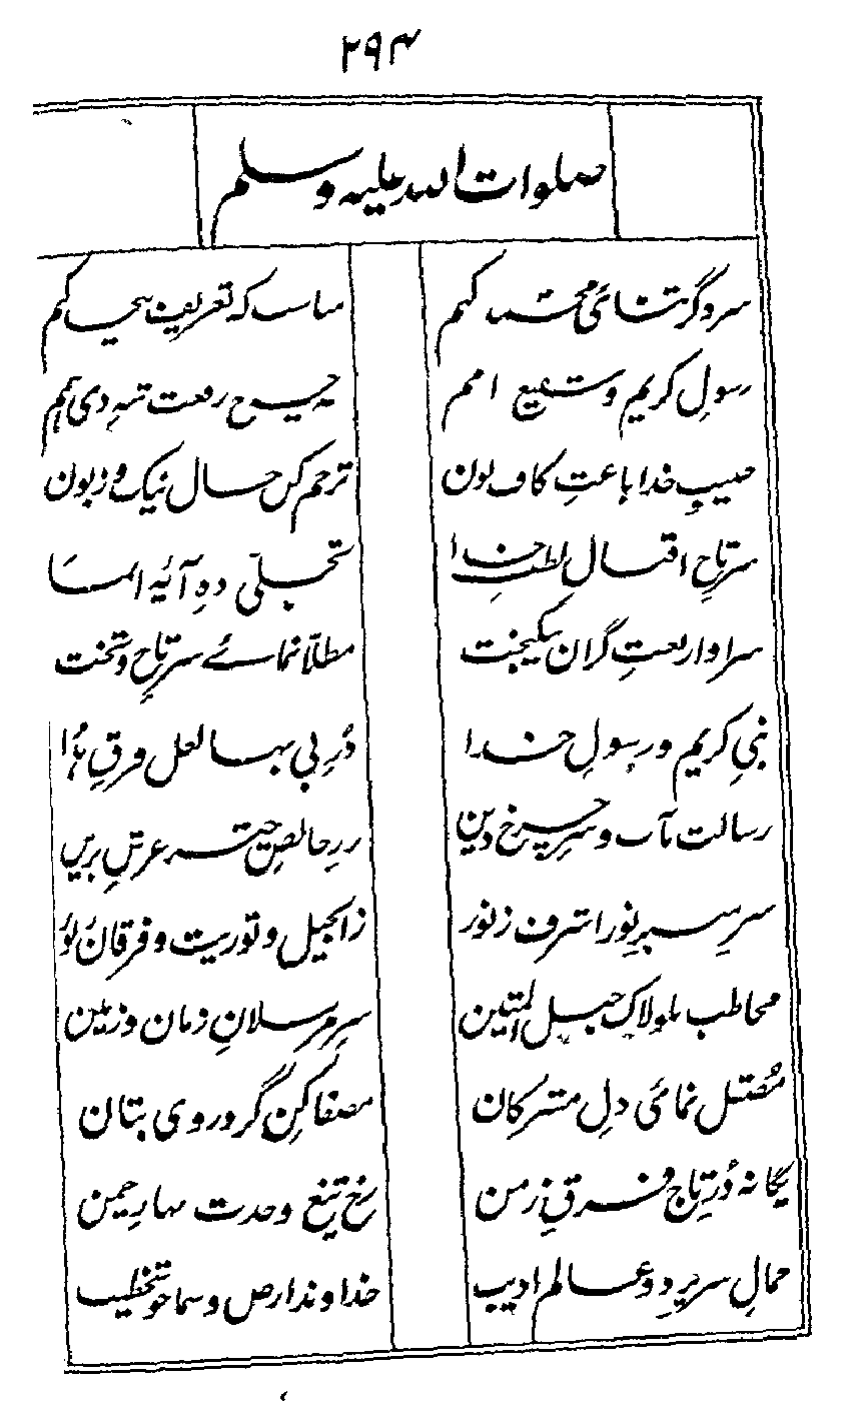 ۲۹۴
صلوات الله علیه وسلم
سزد گر ثنائی محمد کنم مناسب که تعریف بیحد کنم
رسولِ کریم و شفیع امم
حبیبِ خدا باعثِ کاف و نون ترحم کن حال نیک و زبون
سرِ تاجِ اقبال لطفِ خدا تجلّی دهِ آئیه انّما
سزاوار بعثِ گران نیکبخت مطلّا نمائے سرِ تاج و تخت
نبیِ کریم و رسولِ خدا دُرِ بی بها لعل فرقِ
رسالت مآب و سرِ چرخ دین عرشِ بریں
سرِ سپرِ نور اشرف ز نور ز انجیل و توریت و فرقان
مخاطب بلولاک حبل المتین سرِ مرسلانِ زمان و زمین
نمائی دلِ مشرکان مصفا کنِ گرد روی بتان
یگانه دُرِ تاج فرقِ زمن رخِ تیغ وحدت
جمالِ سریرِ دو عالم ادیب خداوند ارض و سما